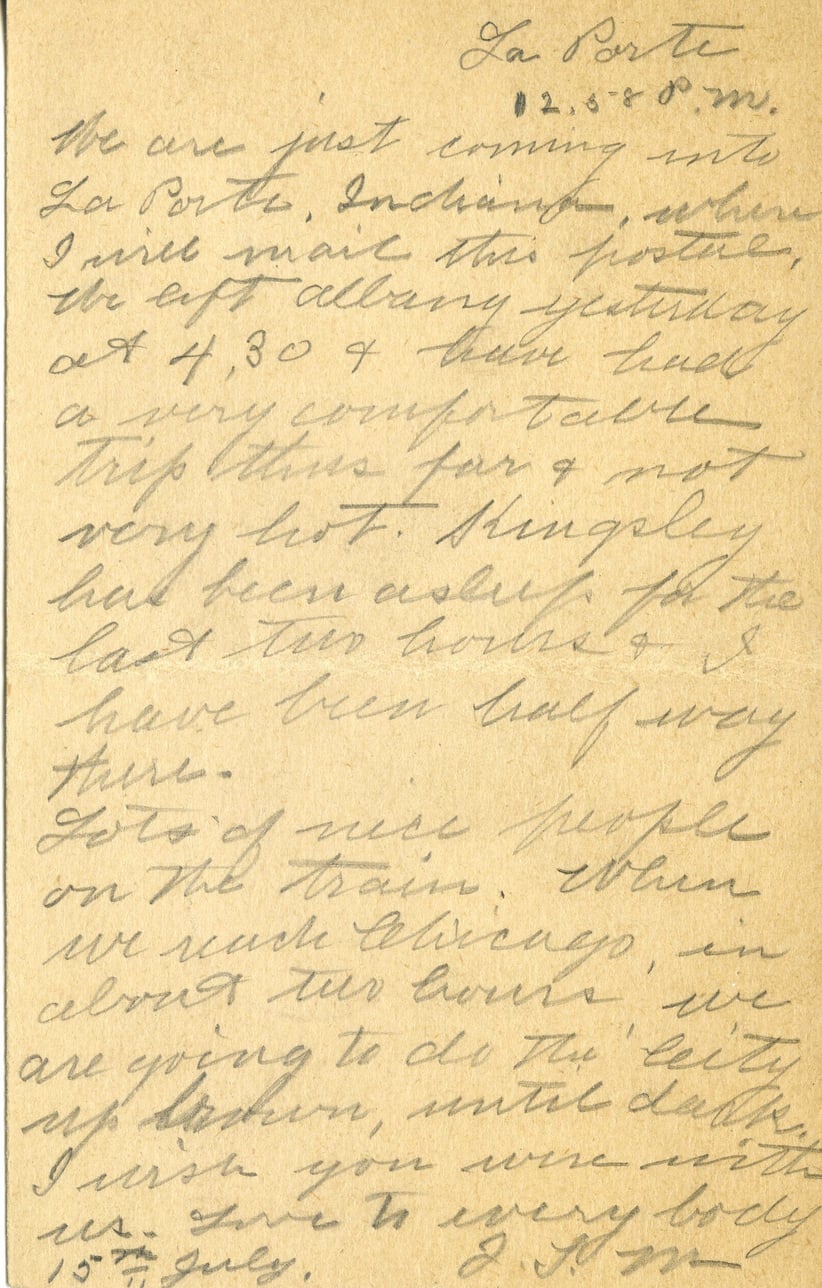 La Porte
12.58 P.M.
We are just coming into
La Porte, Indiana, where
I will mail this postal.
We left Albany yesterday
at 4,30 & have had
a very comfortable
trip thus far & not
very hot. Kingsley
has been asleep for the
last two hours & I
have been half way
there.
Lots of nice people
on the train. When
we reach Chicago, in
about two hours, we
are going to do the city
up brown, until dark.
I wish you were with
us. Love to every body
15th July. J. S. M